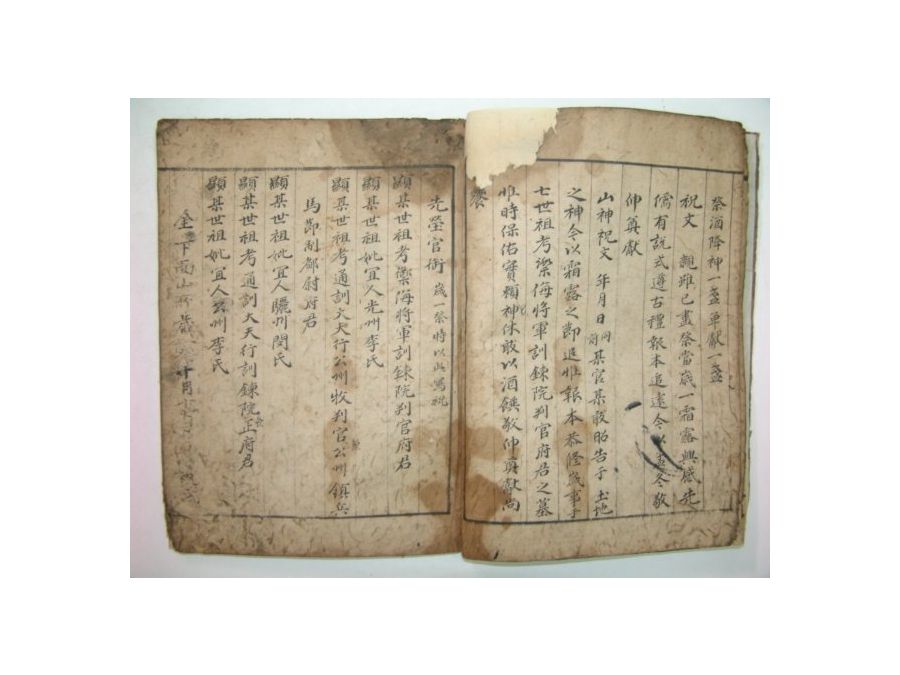 祭酒降神一盞單獻一盞
祝文 親雖已盡祭當歲一霜露興感先
儒有說式遵古禮報本追遠今以孟冬敬
伸奠獻
山神祝文 年月日 某官某敢昭告于 土地
之神今以霜露之節追惟報本恭修歲事于
七世祖考禦侮將軍訓鍊院判官府君之墓
惟時保佑實賴神休敢以酒饌敬伸奠獻尚
饗
先塋官銜 歲一祭時以此寫祝
顯某世祖考禦侮將軍訓鍊院判官府君
顯某世祖妣宜人光州李氏
顯某世祖考通訓大夫行公州牧判官公州鎮兵
馬節制都尉府君
顯某世祖妣宜人驪州閔氏
顯某世祖考通訓大夫行訓鍊院正府君
顯某世祖妣宜人公州李氏
下 山 十月